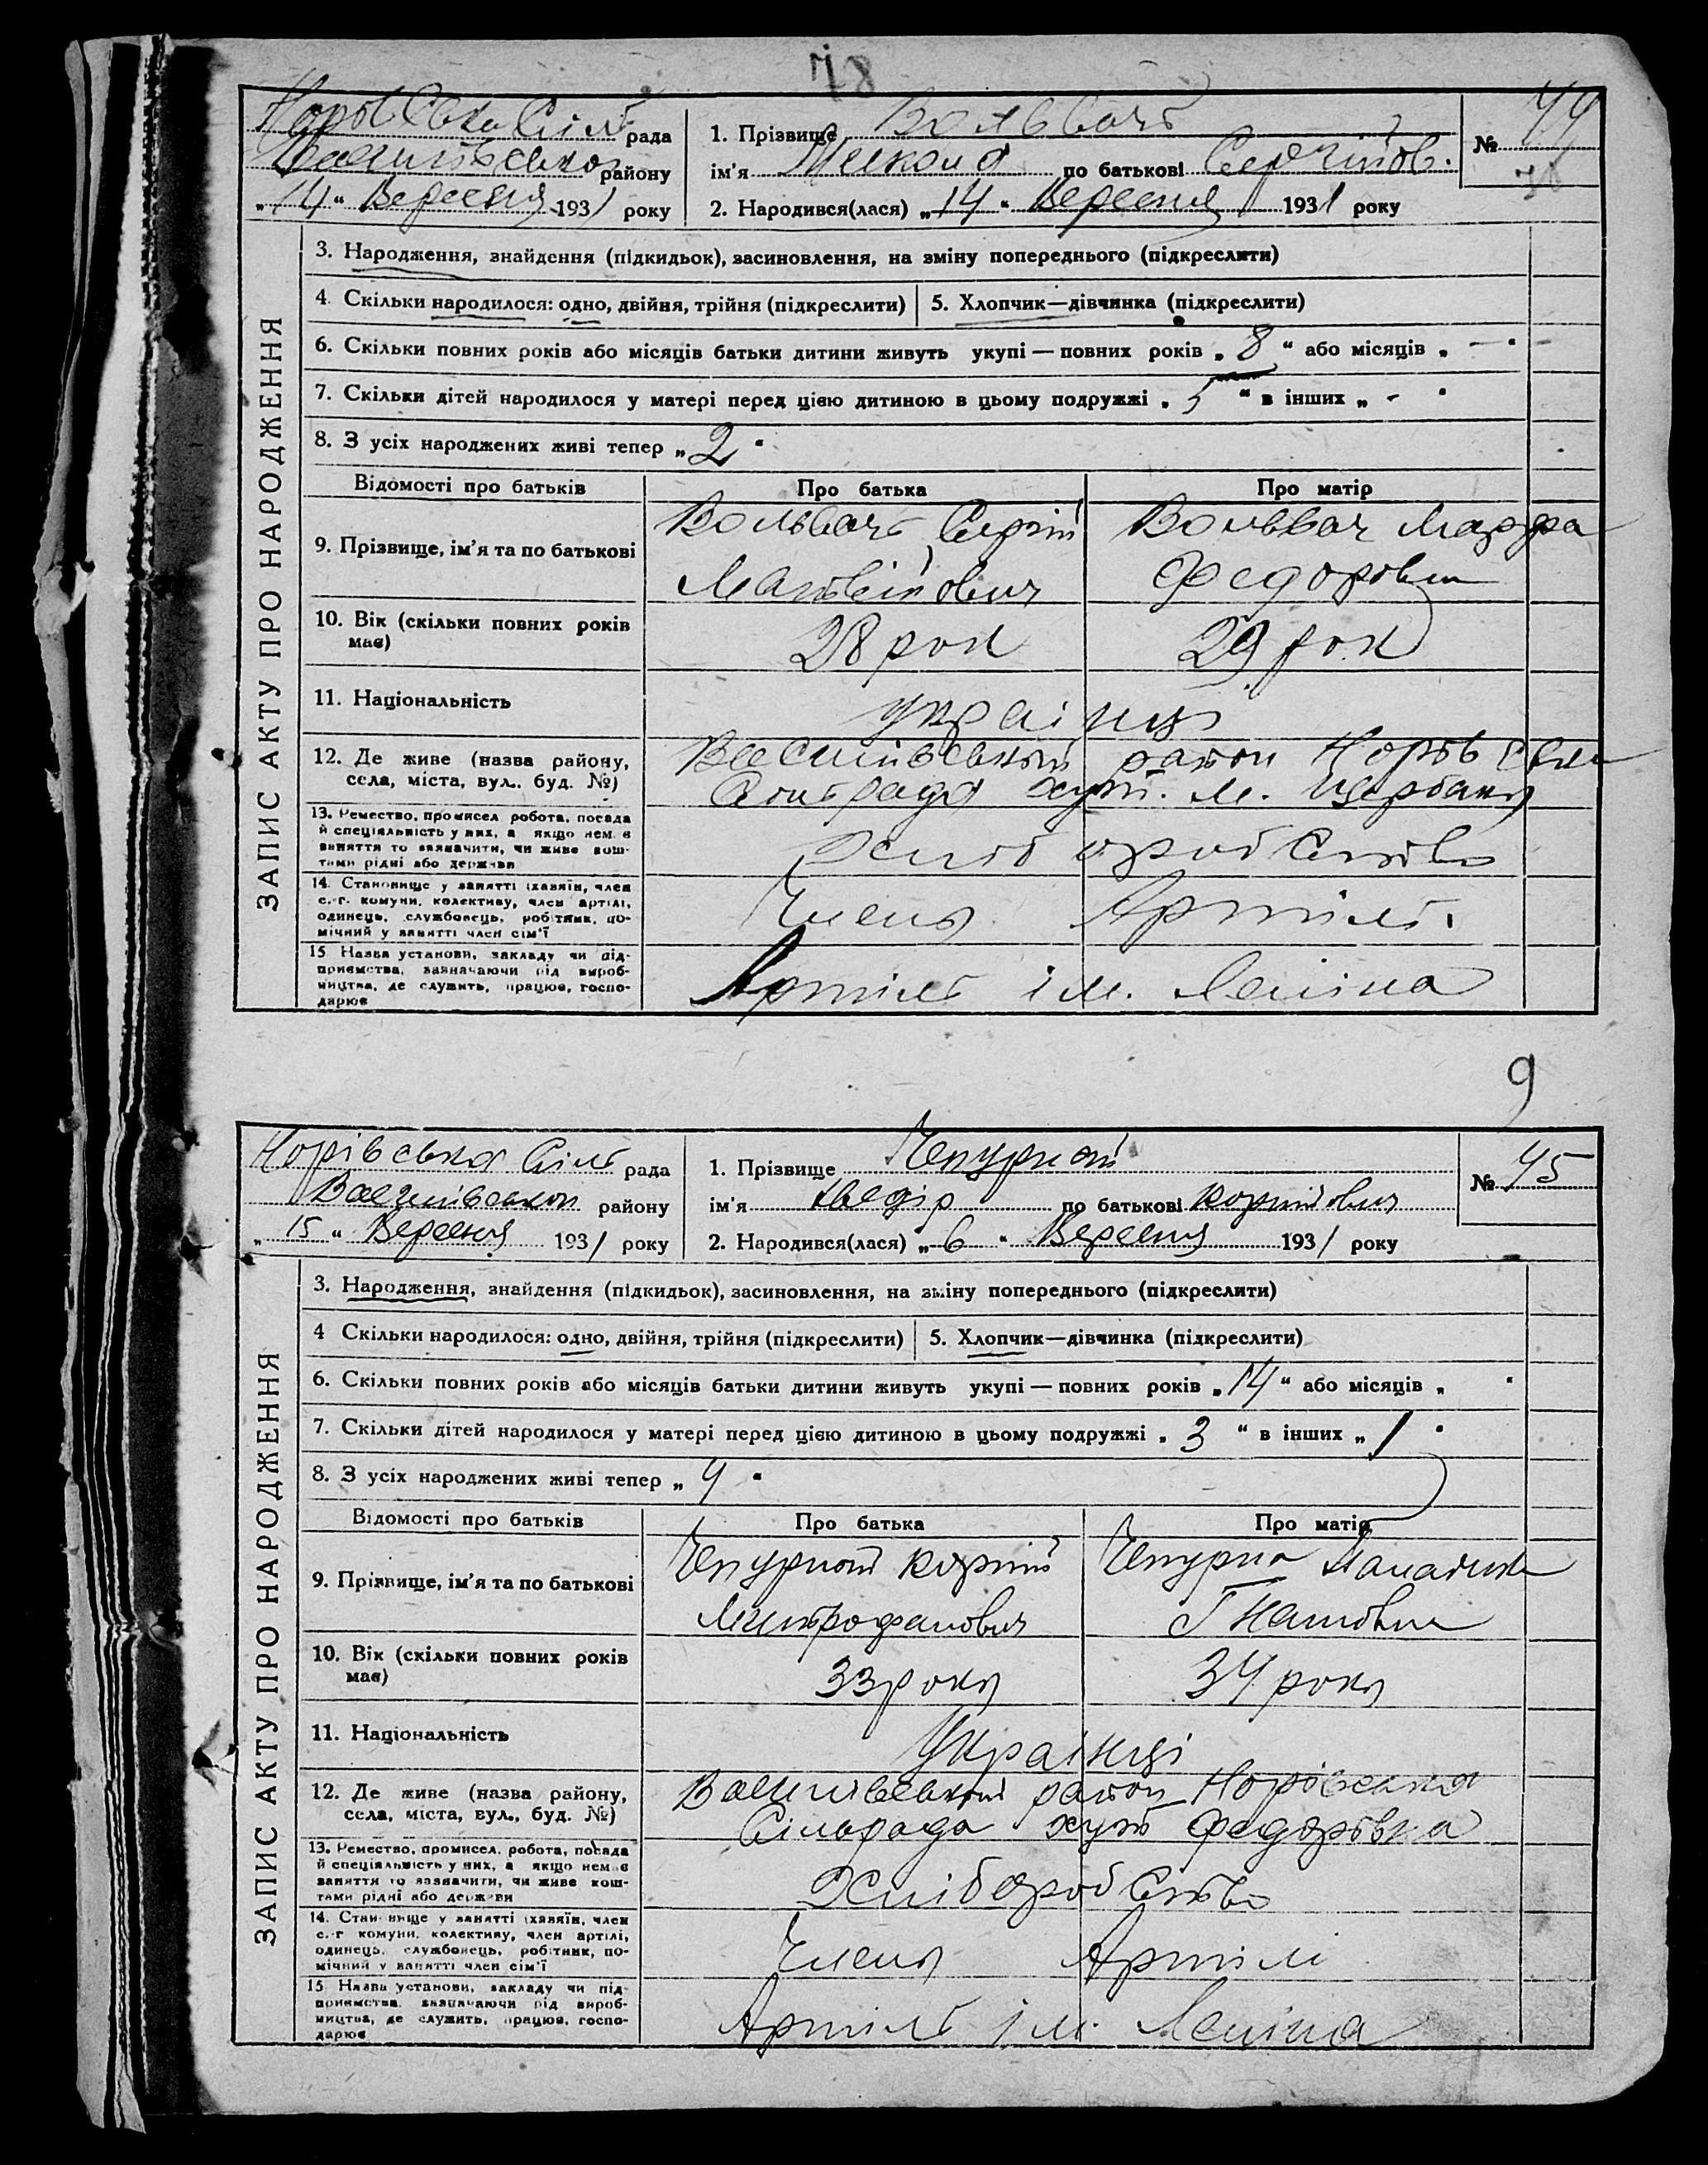 78
рада
району
„14“ Вересня 1931 року
1. Прізвище Вольвачь
ім'я Микола по батькові Сергійов.
2. Народився(лася) „14“ Вересня 1931 року
№ 44
ЗАПИС АКТУ ПРО НАРОДЖЕННЯ
3. Народження, знайдення (підкидьок), засиновлення, на зміну попереднього (підкреслити)
4. Скільки народилося: одно, двійня, трійня (підкреслити) 5. Хлопчик—дівчинка (підкреслити)
6. Скільки повних років або місяців батьки дитини живуть укупі — повних років „8“ або місяців „ —
7. Скільки дітей народилося у матері перед цією дитиною в цьому подружжі „5“ в інших „ -
8. З усіх народжених живі тепер „2“
Відомості про батьків Про батька Про матір
9. Прізвище, ім'я та по батькові
Вольвачь Сергій Матвійович
Вольвач Марфа Федоровна
10. Вік (скільки повних років має)
28 рок 29 рок
11. Національність
українці
12. Де живе (назва району, села, міста, вул., буд. №)
Василівський район
хут. М. Щербаки
13. Ремество, промисел, робота, посада
й спеціальність у них, а якщо немає
заняття то зазначити, чи живе кош-
тами рідні або держави
14. Становище у занятті (хазяїн, член
с.-г. комуни, колективу, член артілі,
одинець, службовець, робітник, по-
мічний у занятті член сім'ї
Члены Артілі
15 Назва установи, закладу чи під-
приємства, зазначаючи рід вироб-
ництва, де служить, працює, госпо-
дарює
Артіль ім. Леніна
9
Норівська Сіль рада
району
„15“ Вересня 1931 року
1. Прізвище Чепурной
ім'я Хведір по батькові Корнійович
2. Народився(лася) „6“ Вересня 1931 року
№ 45
ЗАПИС АКТУ ПРО НАРОДЖЕННЯ
3. Народження, знайдення (підкидьок), засиновлення, на зміну попереднього (підкреслити)
4 Скільки народилося: одно, двійня, трійня (підкреслити) 5. Хлопчик—дівчинка (підкреслити)
6. Скільки повних років або місяців батьки дитини живуть укупі — повних років „14“ або місяців „
7. Скільки дітей народилося у матері перед цією дитиною в цьому подружжі „3“ в інших „1“
8. З усіх народжених живі тепер „4“
Відомості про батьків Про батька Про матір
9. Прізвище, ім'я та по батькові
Чепурной Корній Митрофанович
Чепурна Гнатовна
10. Вік (скільки повних років має)
33 роки 34 роки
11. Національність
Українці
12. Де живе (назва району, села, міста, вул., буд. №)
Василівський район Норівська
Сільрада хут Федорівка
13. Ремество, промисел, робота, посада
й спеціальність у них, а якщо немає
заняття то зазначити, чи живе кош-
тами рідні або держави
Хліборобство
14. Становище у занятті (хазяїн, член
с.-г комуни, колективу, член артілі,
одинець, службовець, робітник, по-
мічний у занятті член сім'ї
Члены Артілі
15 Назва установи, закладу чи під-
приємства, зазначаючи рід вироб-
ництва, де служить, працює, госпо-
дарює
Артіль ім. Леніна